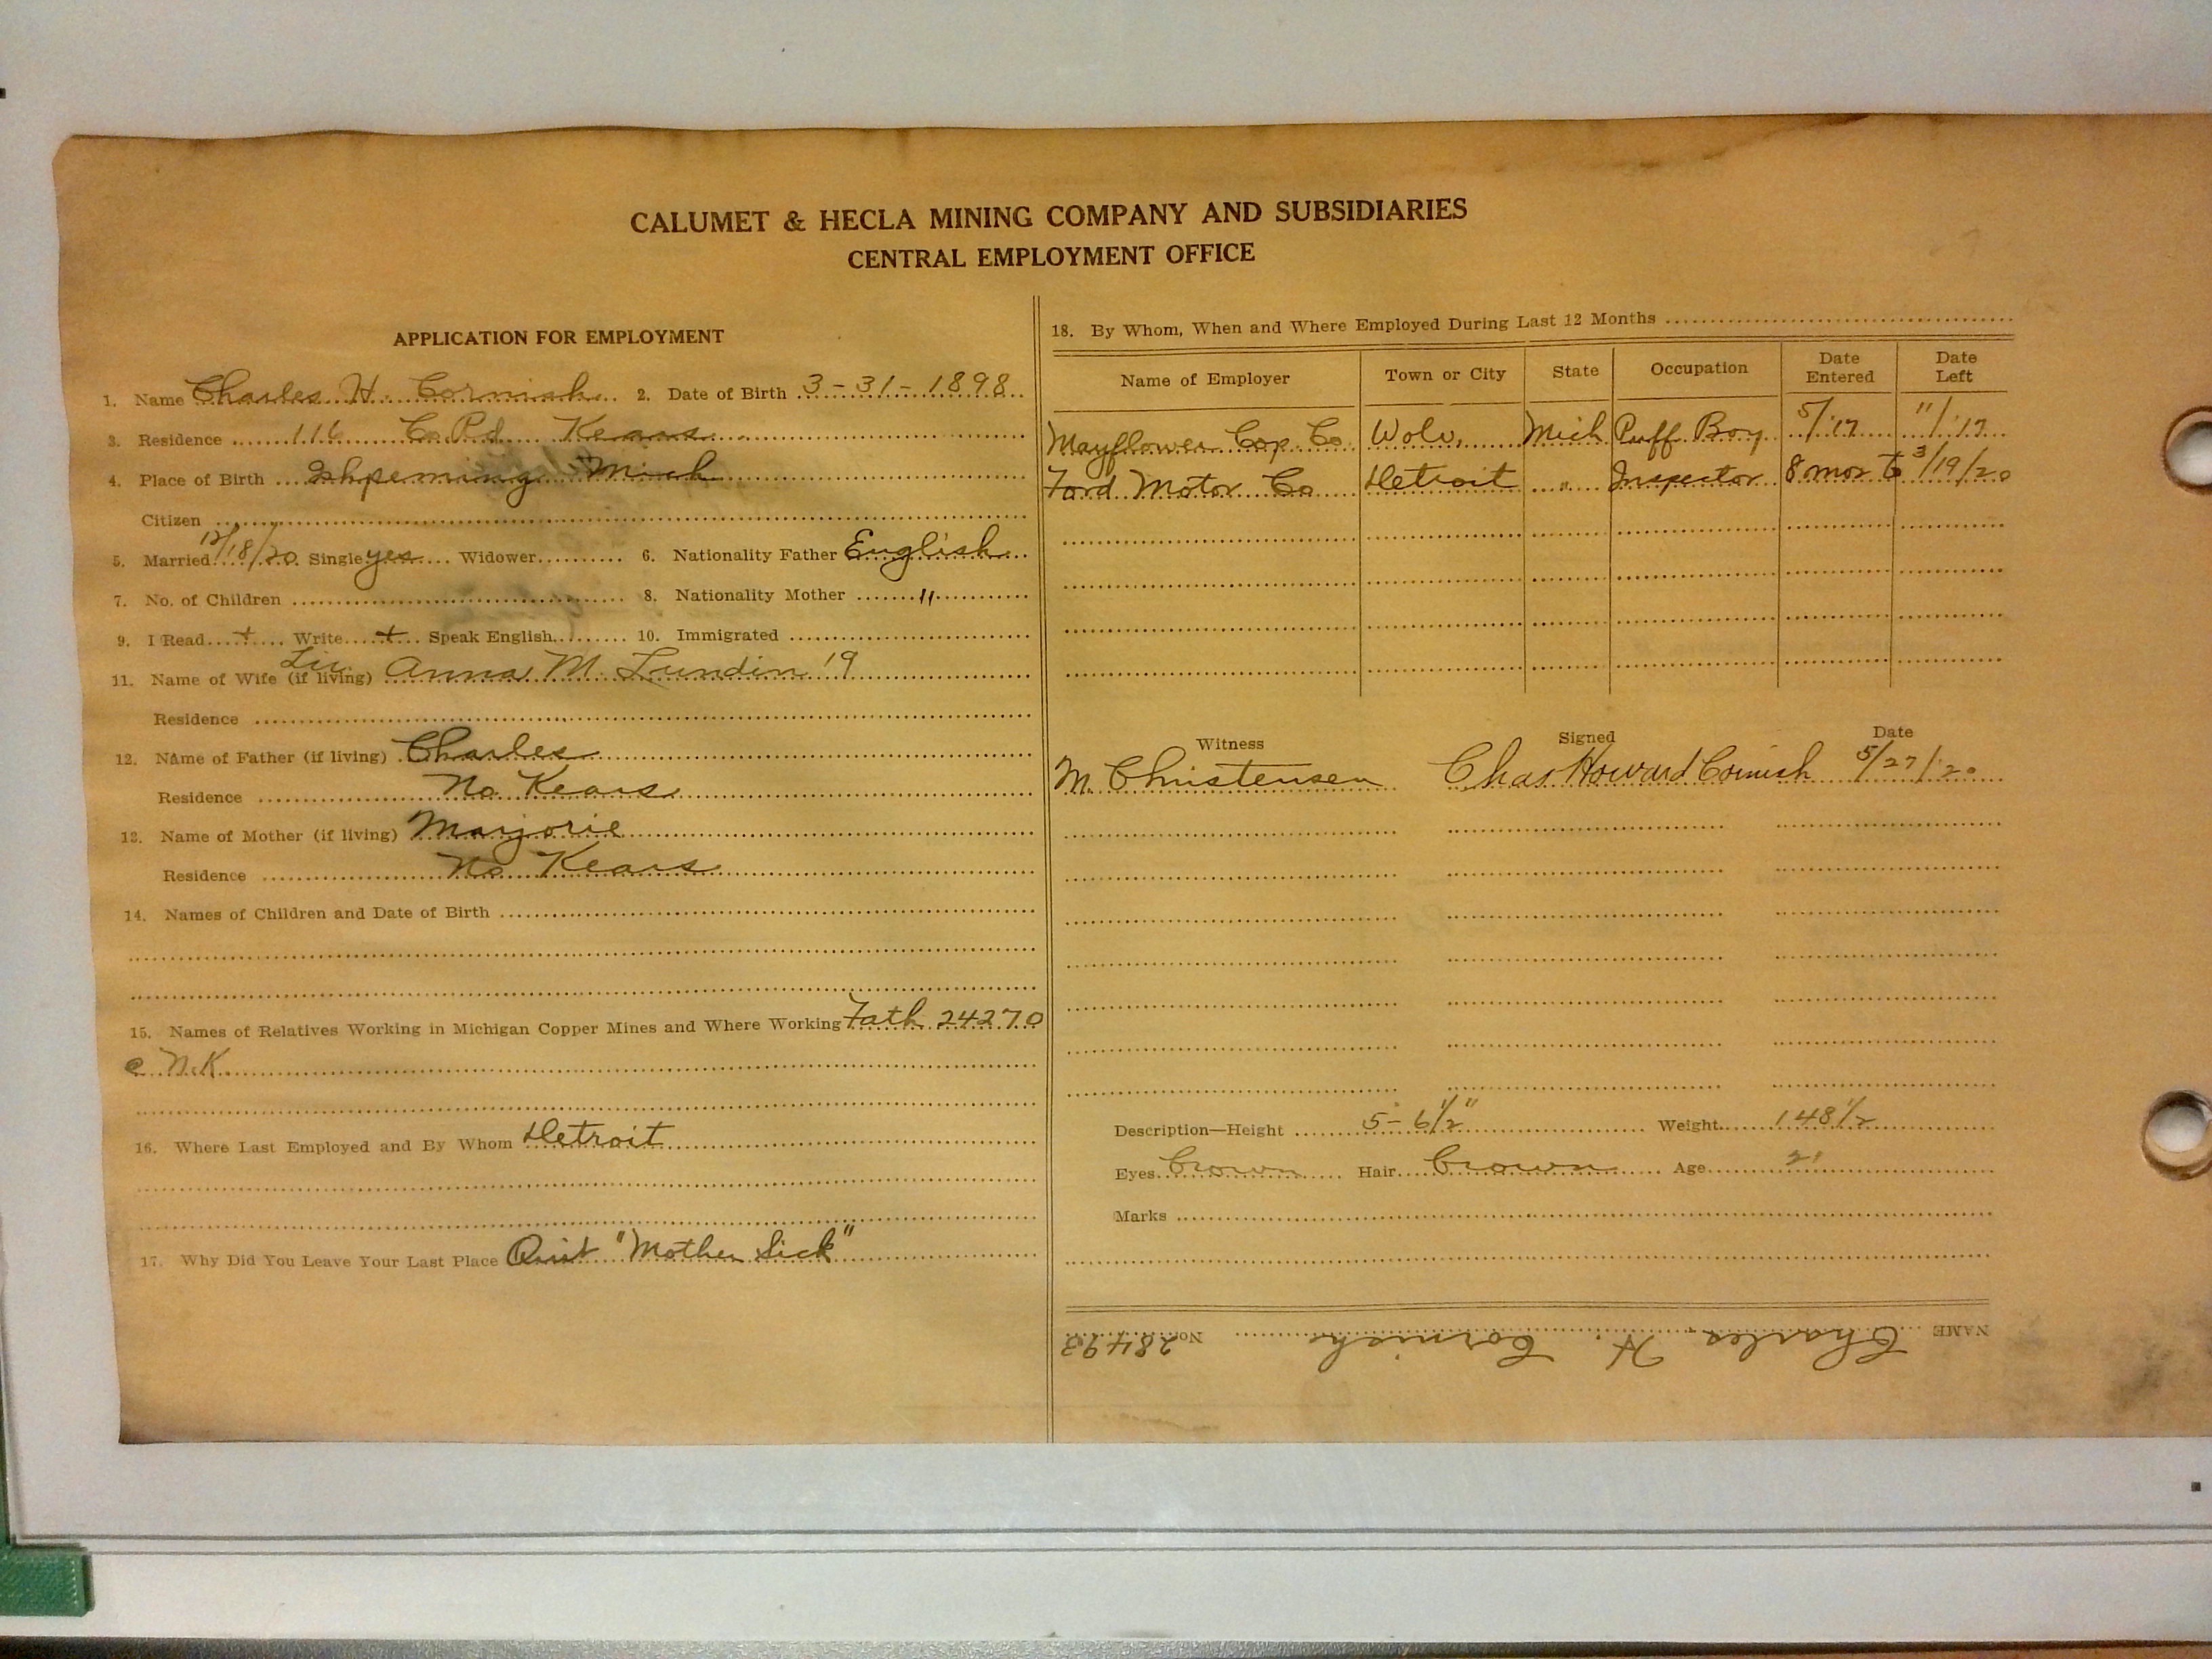 CALUMET & HECLA MINING COMPANY AND SUBSIDIARIES
CENTRAL EMPLOYMENT OFFICE
APPLICATION FOR EMPLOYMENT
1. Name Charles H. Cornish 2. Date of Birth 3-31-1898
3. Residence 116 Co Rd Kears
4. Place of Birth Ishpeming Mich
Citizen
5. Married 12/18/20 Single yes Widower 6. Nationality Father English
7. No. of Children 8. Nationality Mother "
9. I Read + Write + Speak English 10. Immigrated
11. Name of Wife (if living) Liv. Anna M. Lundin '19
Residence
12. Name of Father (if living) Charles
Residence No Kears
13. Name of Mother (if living) Marjorie
Residence No Kears
14. Names of Children and Date of Birth
15. Names of Relatives Working in Michigan Copper Mines and Where Working Fath 24270
c N.K.
16. Where Last Employed and By Whom Detroit
17. Why Did You Leave Your Last Place Quit "Mother Sick"
18. By Whom, When and Where Employed During Last 12 Months
Name of Employer Town or City State Occupation Date Entered Date Left
Mayflower Cop Co Wolv. Mich Puff Boy 5/'17 11/'17
Ford Motor Co Detroit " Inspector 8 mos to 3/19/20
Witness Signed Date
M. Christensen Chas Howard Cornish 5/27/20
Description—Height 5-6½" Weight 148½
Eyes brown Hair brown Age 21
Marks
NAME Charles H. Cornish No. 28493